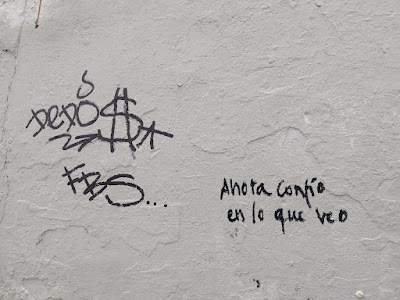 FBS...
Ahora confío
en lo que veo